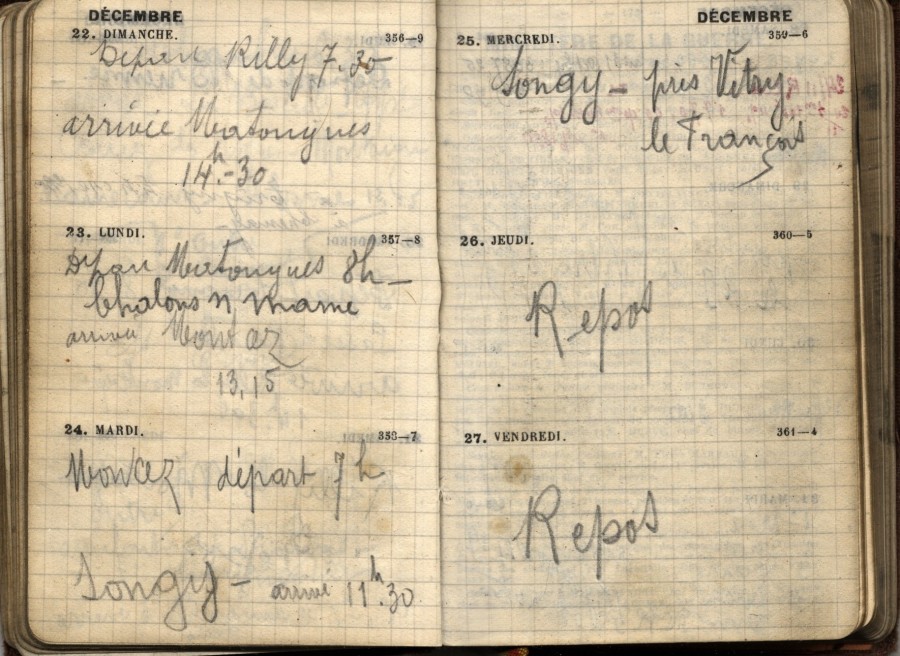 DÉCEMBRE
22. DIMANCHE. 356—9
Départ Rilly 7.30
arrivée Matougues
14h-30
23. LUNDI. 357—8
Départ Matougues 8h—
Chalons s/ marne
arrivée Moncez
13,15
24. MARDI. 358—7
Moncez départ 7h
Songy — arrivé 11h.30
DÉCEMBRE
25. MERCREDI. 359—6
Songy — près Vitry
le François
26. JEUDI. 360—5
Repos
27. VENDREDI. 361—4
Repos